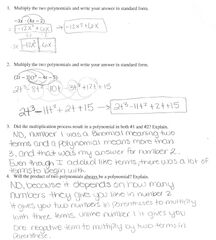 1. Multiply the two polynomials and write your answer in standard form.
-3x · (4x − 2)
-12x² + 6x → -12x² + 6x
-3x -12x² 6x
2. Multiply the two polynomials and write your answer in standard form.
2t³ − 11t² + 2t + 15 → 2t³ − 11t² + 2t + 15
3. Did the multiplication process result in a polynomial in both #1 and #2? Explain.
NO, number 1 was a binomial meaning two
terms and a polynomial means more than
2, and that was my answer for number 2.
Even though I added like terms, there was a lot of
terms to begin with.
4. Will the product of two polynomials always be a polynomial? Explain.
NO, because it depends on how many
numbers they give you like in number 2
it gives you two numbers in parentheses to multiply
with three terms, unlike number 1 it gives you
one negative term to multiply by two terms in
parenthese.